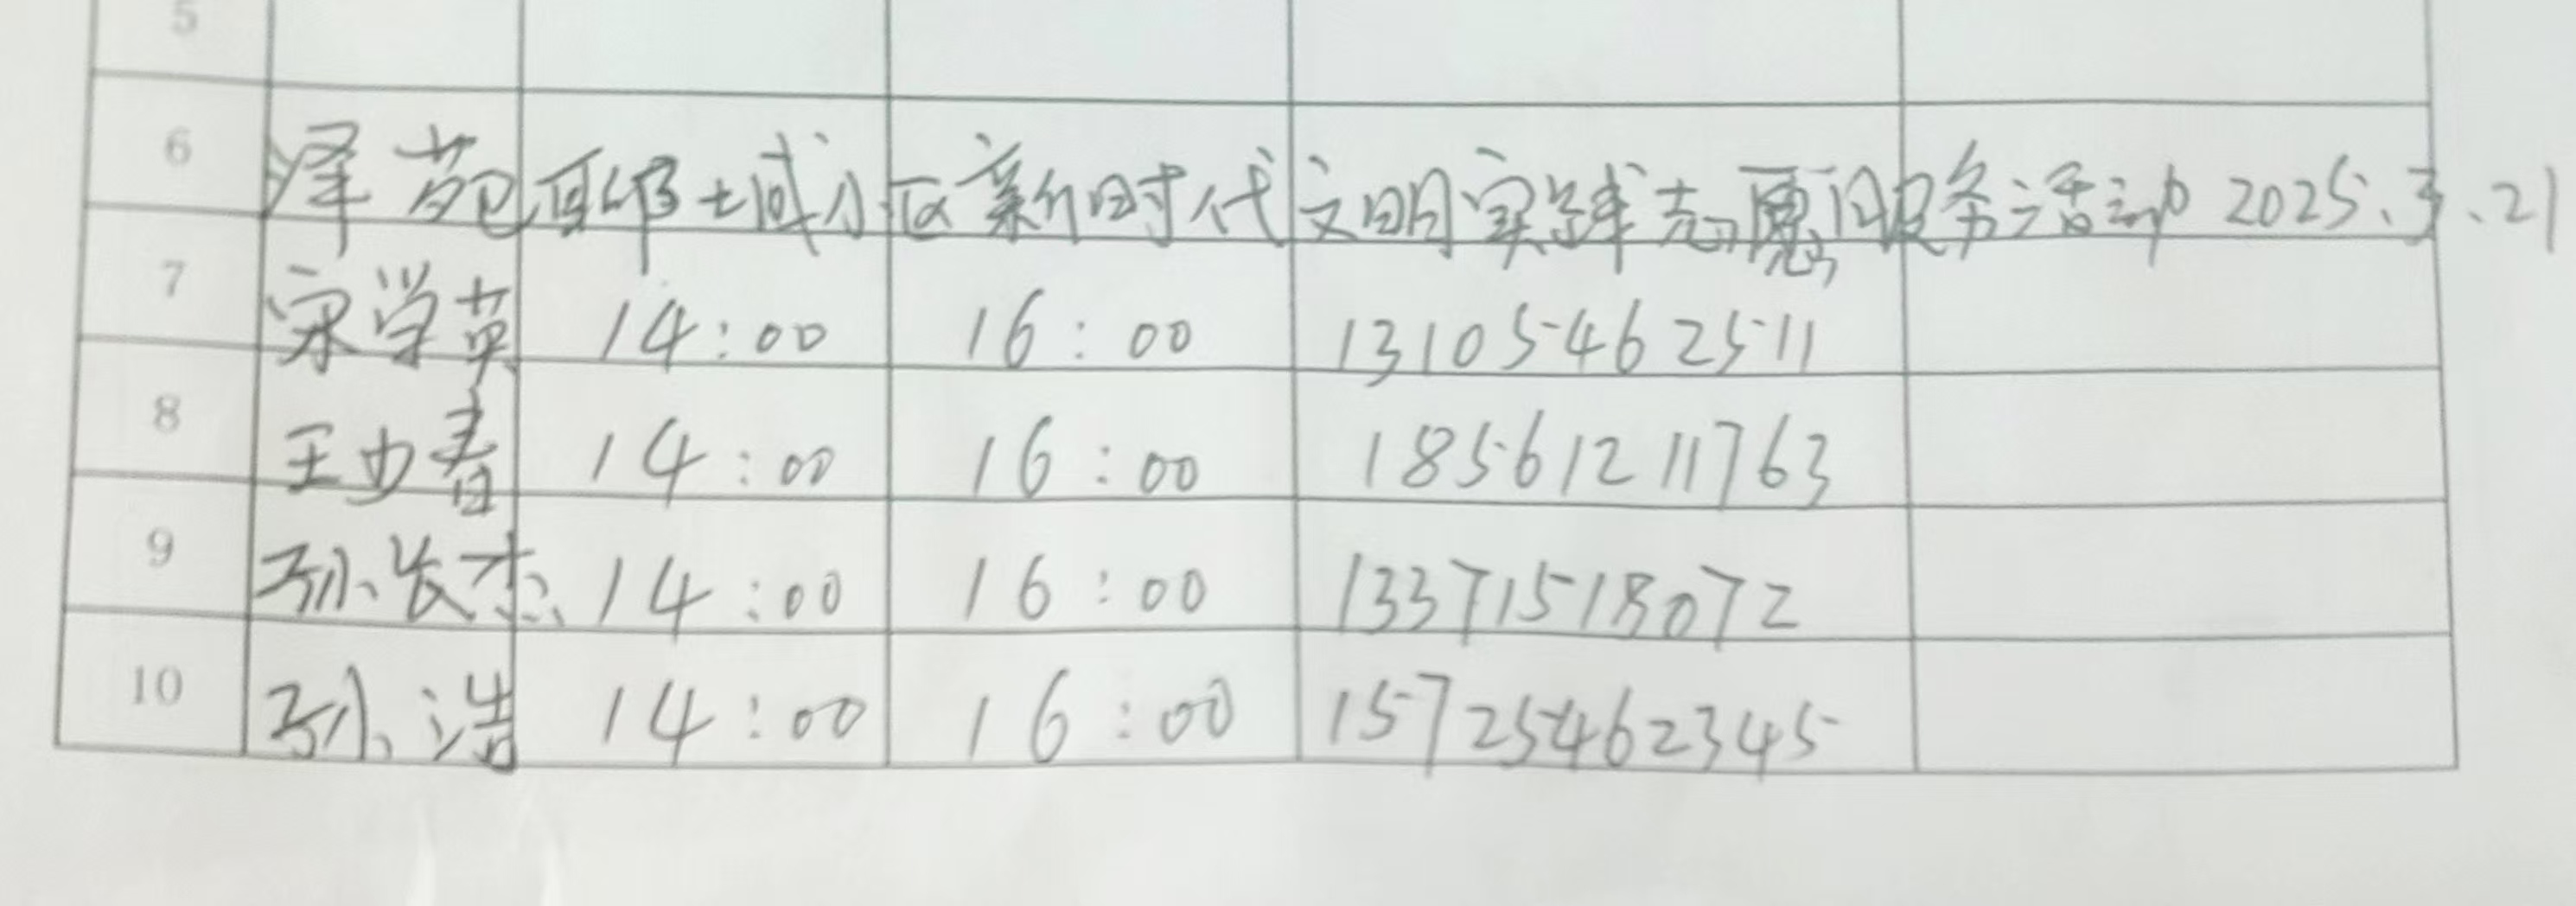 5
6 泽苑耶邬城小区新时代文明实践志愿服务活动 2025.3.21
7 宋学英 14:00 16:00 13105462511
8 王少春 14:00 16:00 18561211763
9 孙长杰 14:00 16:00 13371518072
10 孙浩 14:00 16:00 15725462345